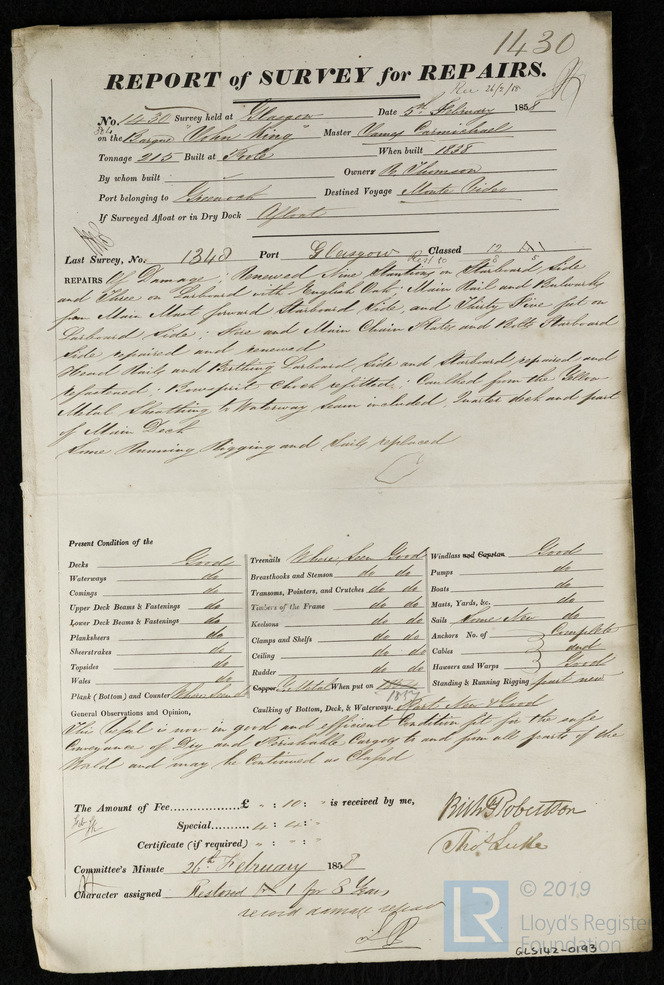 1430
REPORT of SURVEY for REPAIRS.
Rec 26/2/58
No. 1430 Survey held at Glasgow Date 5th February 1858
on the Barque "John King" Master James Carmichael
Tonnage 215 Built at Poole When built 1838
By whom built Owners R. Thomson
Port belonging to Greenock Destined Voyage Monte Video
If Surveyed Afloat or in Dry Dock Afloat
Last Survey, No. 1348 Port Glasgow Classed
REPAIRS If Damage; Renewed Nine Stantions on Starboard Side
and Three on Larboard with English Oak: Main Rail and Bulwarks
from Main Mast forward Starboard Side, and Thirty Five feet on
Larboard Side; Fore and Main Chain Plates and Bolts Starboard
Side repaired and renewed
Head Rails and Berthing Larboard Side and Starboard repaired and
refastened; Bowsprit Chock refitted; Caulked from the Yellow
Metal Sheathing to Waterway Seam included, Quarter deck and part
of Main Deck
Some Running Rigging and Sails replaced
Present Condition of the
Decks Good
Waterways do
Comings do
Upper Deck Beams & Fastenings do
Lower Deck Beams & Fastenings do
Planksheers do
Sheerstrakes do
Topsides do
Wales do
Plank (Bottom) and Counter Where Seen do
Treenails Where Seen Good
Breasthooks and Stemson do do
Transoms, Pointers, and Crutches do do
Timbers of the Frame do do
Keelsons do do
Clamps and Shelfs do do
Ceiling do do
Rudder do do
Copper Y. Metal When put on 1857
Caulking of Bottom, Deck, & Waterways. Part New & Good
Windlass and Capstan Good
Pumps do
Boats do
Masts, Yards, &c. do
Sails Some New do
Anchors No. of Complete
Cables and
Hausers and Warps Good
Standing & Running Rigging part new
General Observations and Opinion,
This Vessel is now in good and efficient Condition fit for the safe
Conveyance of Dry and Perishable Cargoes to and from all parts of the
World and may be Continued as Classed
The Amount of Fee £ " : 10 : " is received by me,
Special 4 : 4 : "
Certificate (if required) " : " : "
Richd Robertson
Thos Luke
Committee's Minute 26th February 1858
Character assigned Restored A 1 for 8 Years
record damage repairs
LR
© 2019
Lloyd's Register
Foundation
GLS142-0193